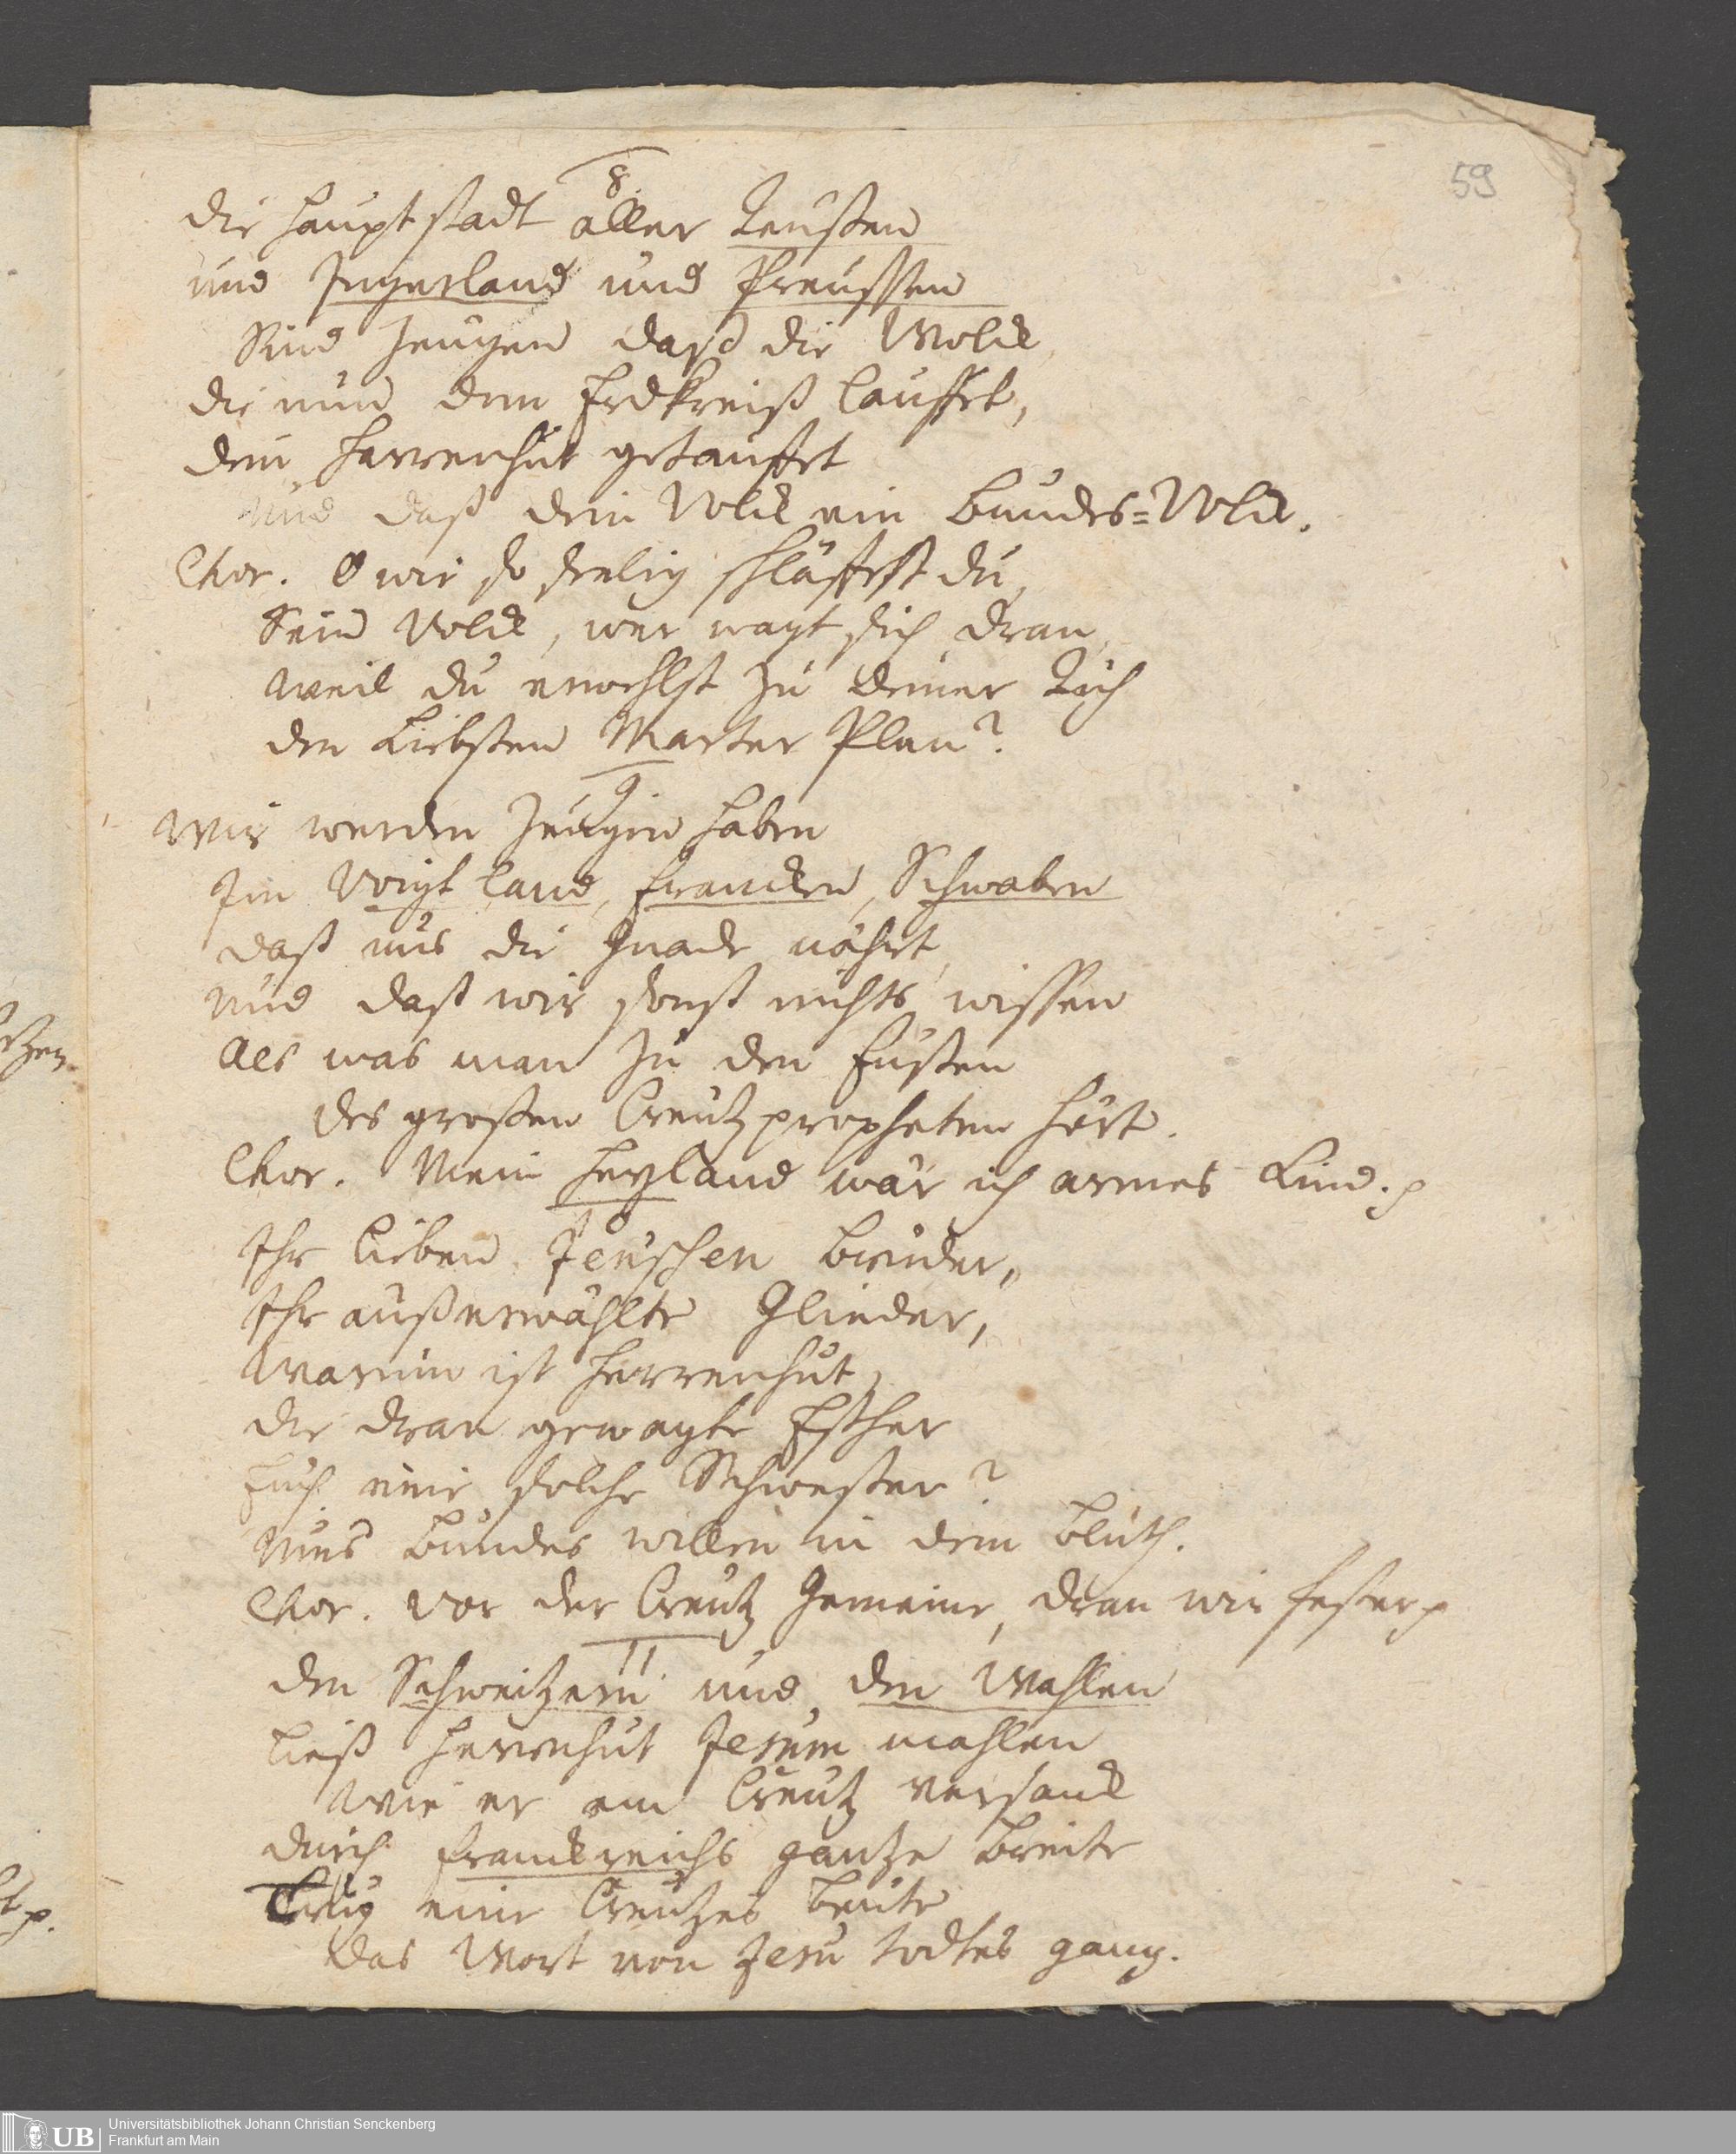 59
8.
die Hauptstadt aller Reußen
und Ingerland und Preussen
Sind Zeugen daß die Wolck,
die nun dem Erdkreiß lauffet,
den Herrenhut getauffet
und daß dein Volck ein Bundes=Volck.
Chor. O wie so seelig schläffest du
Sein Volck, wer wagt sich dran,
weil du erwehlst zu deiner Ruh
den Liebsten Marter Plan?
9.
Wir werden Zeugen haben
Im Voigt land, Francken, Schwaben
daß uns die Gnade nährt,
und daß wir sonst nichts wissen
Als was man zu den Fußen
des großen Creutzpropheten hört.
Chor. Mein Heyland wär ich armes Kind. p
10
Ihr lieben Jenschen Brüder,
Ihr außerwählte Glieder,
Warum ist Herrenhut,
die dran gewagte Esther
Euch eine solche Schwester?
Ums Bundes willen in dem Bluth.
Chor. Vor der Creutz Gemeine, dran wir fester p
11
den Schweitzern und den Wahlen
ließ Herrnhut Jesum mahlen
Wie er am Creutz versanck
durch Franckreichs gantze Breite
Trug eine Creutzes beute
das Wort von Jesu todtes gang.
UB
Universitätsbibliothek Johann Christian Senckenberg
Frankfurt am Main